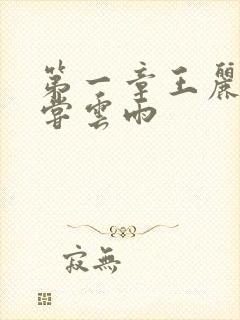 第一章王麗
嘗雲雨
寂無